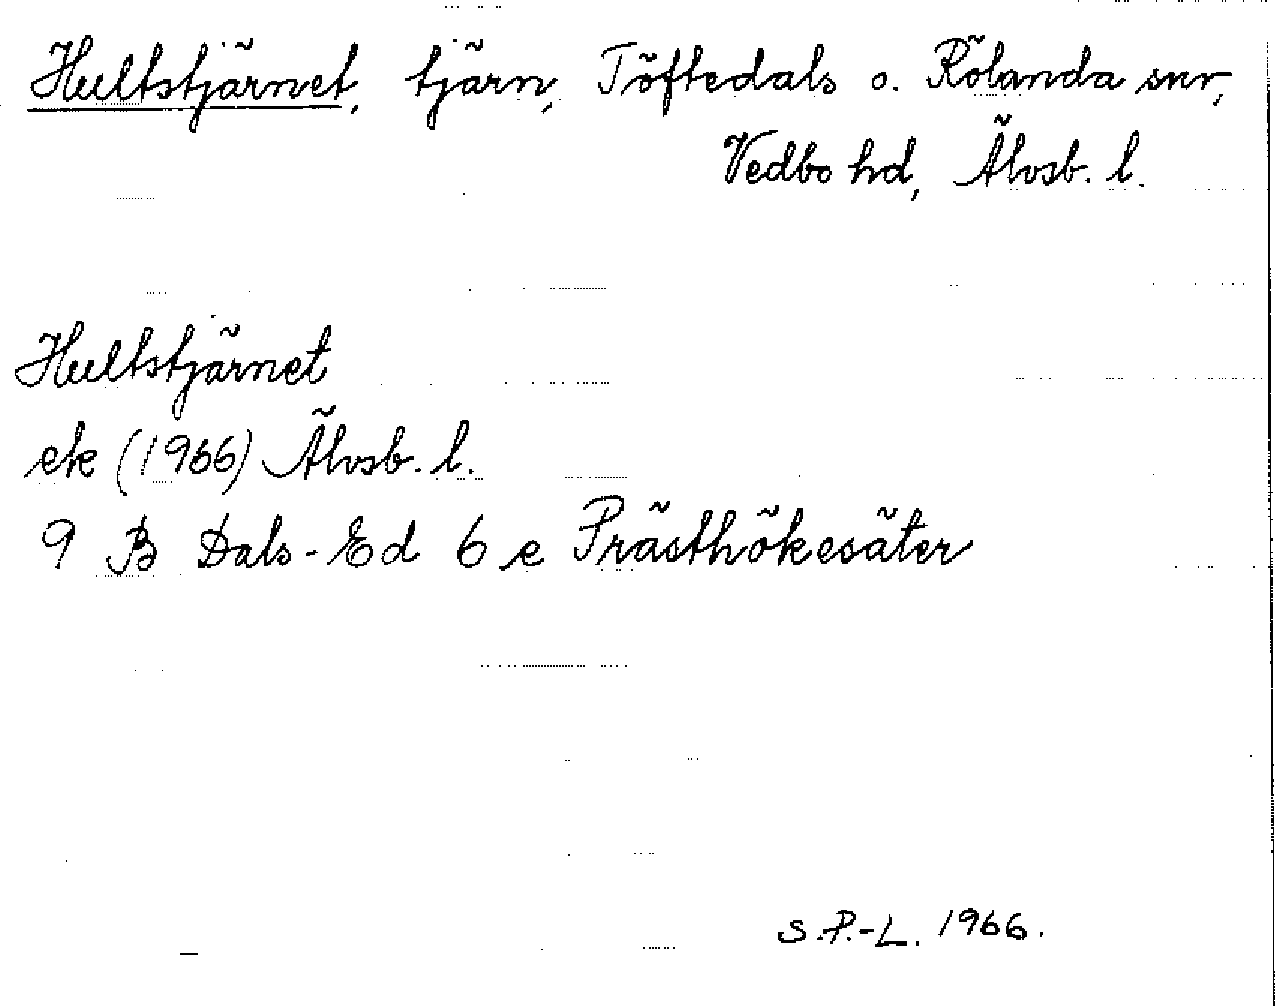 Hultstjärnet, tjärn, Töftedals o. Rölanda snr,
Vedbo hd, Älvsb. l.
Hultstjärnet
ek (1966) Älvsb. l.
9 B Dals-Ed 6 e Prästhökesäter
S.P.-L. 1966.